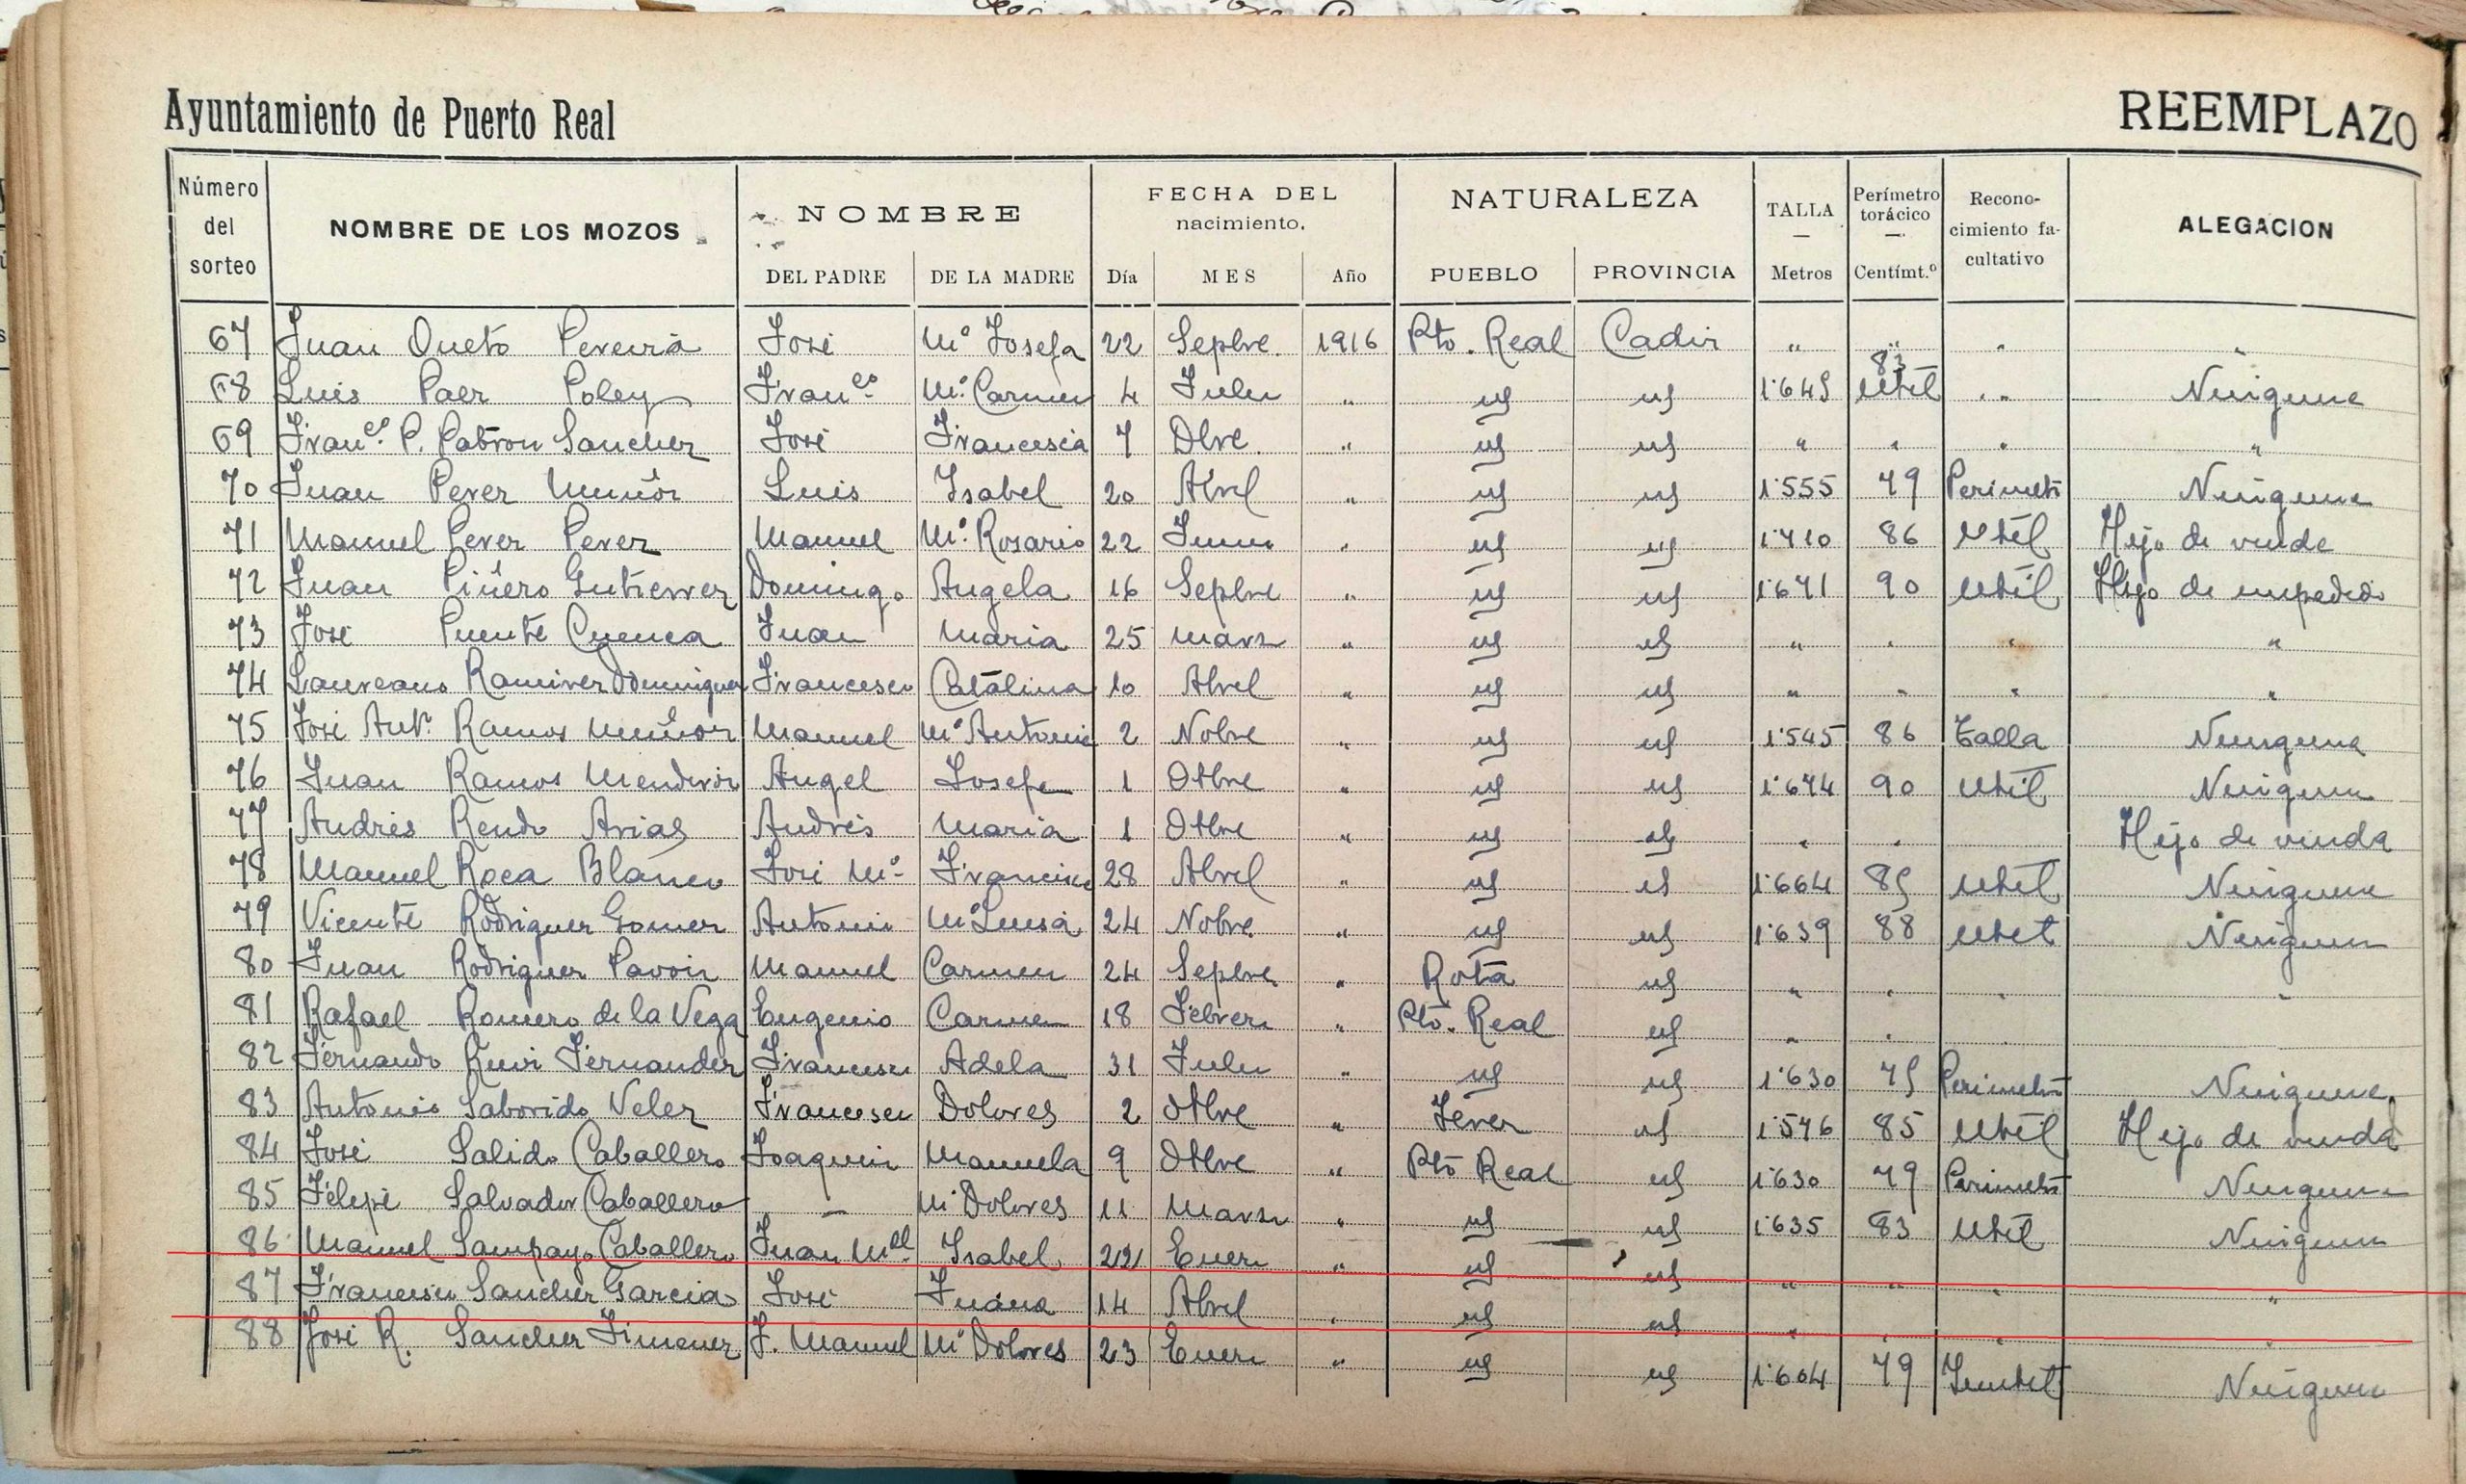 Ayuntamiento de Puerto Real REEMPLAZO
Número del sorteo NOMBRE DE LOS MOZOS NOMBRE DEL PADRE DE LA MADRE FECHA DEL nacimiento. Día MES Año NATURALEZA PUEBLO PROVINCIA TALLA — Metros Perímetro torácico — Centímt.º Recono-cimiento fa-cultativo ALEGACION
67 Juan Oneto Pereira José Mª Josefa 22 Sepbre. 1916 Pto. Real Cadiz " " " "
68 Luis Paez Poley Franco. Mª Carmen 4 Julio " id id 1'649 83 Util " Ninguna
69 Franco. P. Patron Sanchez José Francisca 7 Dbre. " id id " " " "
70 Juan Perez Muñoz Luis Isabel 20 Abril " id id 1'555 79 Perimetro Ninguna
71 Manuel Perez Perez Manuel Mª Rosario 22 Junio " id id 1'710 86 Util Hijo de viuda
72 Juan Piñero Gutierrez Domingo Angela 16 Sepbre " id id 1'671 90 Util Hijo de impedido
73 José Puente Cuenca Juan Maria 25 Marzo " id id " " " "
74 Laureano Ramirez Dominguez Francisco Catalina 10 Abril " id id " " " "
75 José Antº Ramos Muñoz Manuel Mª Antonia 2 Nobre " id id 1'545 86 Talla Ninguna
76 Juan Ramos Mendoza Angel Josefa 1 Otbre " id id 1'674 90 Util Ninguna
77 Andrés Rendo Arias Andrés Maria 1 Otbre " id id " " Hijo de viuda
78 Manuel Roca Blanco José Mª Francisca 28 Abril " id id 1'664 89 Util Ninguna
79 Vicente Rodriguez Gomez Antonio Mª Luisa 24 Nobre. " id id 1'639 88 Util Ninguna
80 Juan Rodriguez Pavon Manuel Carmen 24 Sepbre " Rota id " " " "
81 Rafael Romero de la Vega Eugenio Carmen 18 Febrero " Pto. Real id " " "
82 Fernando Ruiz Fernandez Francisco Adela 31 Julio " id id 1'630 79 Perimetro Ninguna
83 Antonio Saborido Velez Francisco Dolores 2 Otbre " Jerez id 1'576 85 Util Hijo de viuda
84 José Salido Caballero Joaquin Manuela 9 Otbre " Pto Real id 1'630 79 Perimetro Ninguna
85 Felipe Salvador Caballero — Mª Dolores 11 Marzo " id id 1'635 83 Util Ninguna
86 Manuel Sampayo Caballero Juan Mel Isabel 22 Enero " id id " " " "
87 Francisco Sanchez Garcia José Juana 14 Abril " id id " " " "
88 José R. Sanchez Jimenez J. Manuel Mª Dolores 23 Enero " id id 1'604 79 Inutil Ninguna